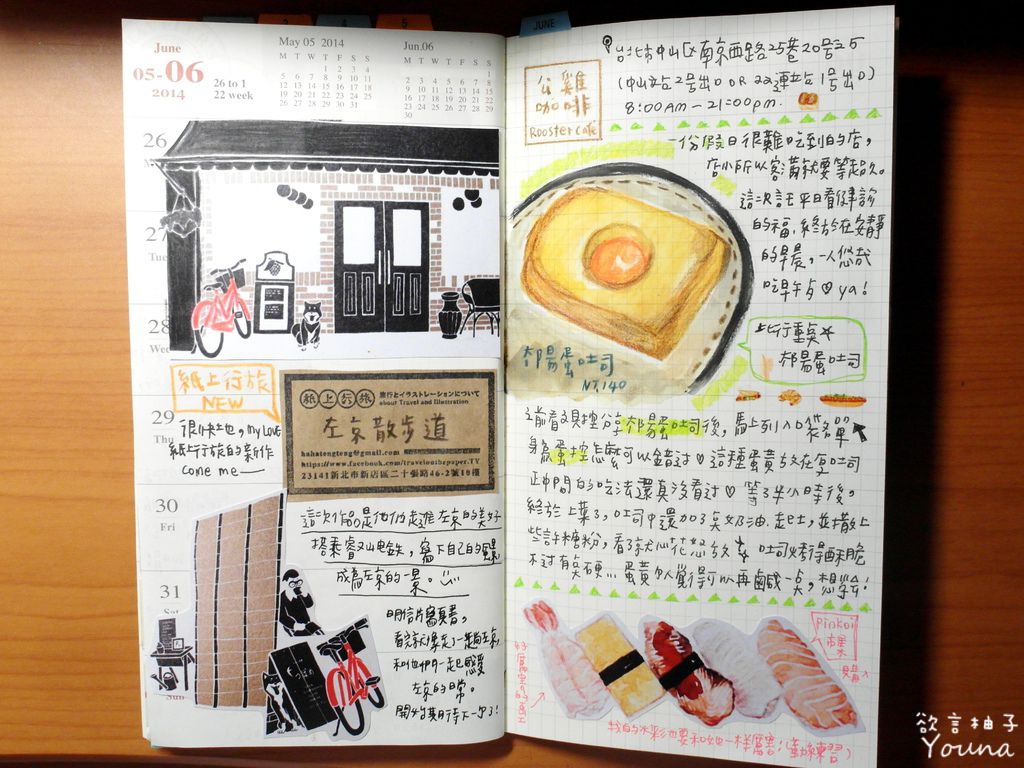 JUNE
June
05-06
2014
26 to 1
22 week
May 05 2014
M T W T F S S
1 2 3 4
5 6 7 8 9 10 11
12 13 14 15 16 17 18
19 20 21 22 23 24 25
26 27 28 29 30 31
Jun.06
M T W T F S S
1
2 3 4 5 6 7 8
9 10 11 12 13 14 15
16 17 18 19 20 21 22
23 24 25 26 27 28 29
30
26
27
Tue
28
Wed
29
Thu
30
Fri
31
Sat
Sun
紙上行旅
NEW
很快地，my LOVE
紙上行旅的新作
come me——
紙上行旅
旅行とイラストレーションについて
about Travel and Illustration
左京散步道
hahatongteng@gmail.com
https://www.facebook.com/travelonthepaper.TV
23141新北市新店區二十張路46-2號18樓
這次作品是他們走進左京的美好
搭乘叡山電鉄，寫下自己的風景
成為左京的一景。
明信片寫真書，
看完就像走了一趟左京，
和他們一起感受
左京的日常。
開始期待下一次了！
公雞
咖啡
Rooster cafe
台北市中山區南京西路25巷20號之5
(中山站2号出口 OR 双連站1号出口)
8:00AM－21:00pm.
份假日很難吃到的店，
店小所以客滿就要等起來。
這次託平日看健診
的福，終於在安靜
的早晨，一人悠哉
吃早午 ya！
上行重点
邪惡蛋吐司
邪惡蛋吐司
NT.140
之前看貝控分享邪惡蛋吐司後，馬上列入口袋名單
身為蛋控怎麼可以錯過 這種蛋黃放在厚吐司
正中間的吃法還真沒看過 等了半小時後，
終於上桌了，吐司中還加了奶油、起士，並撒上
些許糖粉，看了就心花怒放 吐司烤得酥脆
不過有点硬... 蛋黃個人覺得可以再鹹一点，想學！
Pinkoi
購
好厲害的
我的水彩也要和她一樣厲害！(勤練習)
欲言柚子
Youna